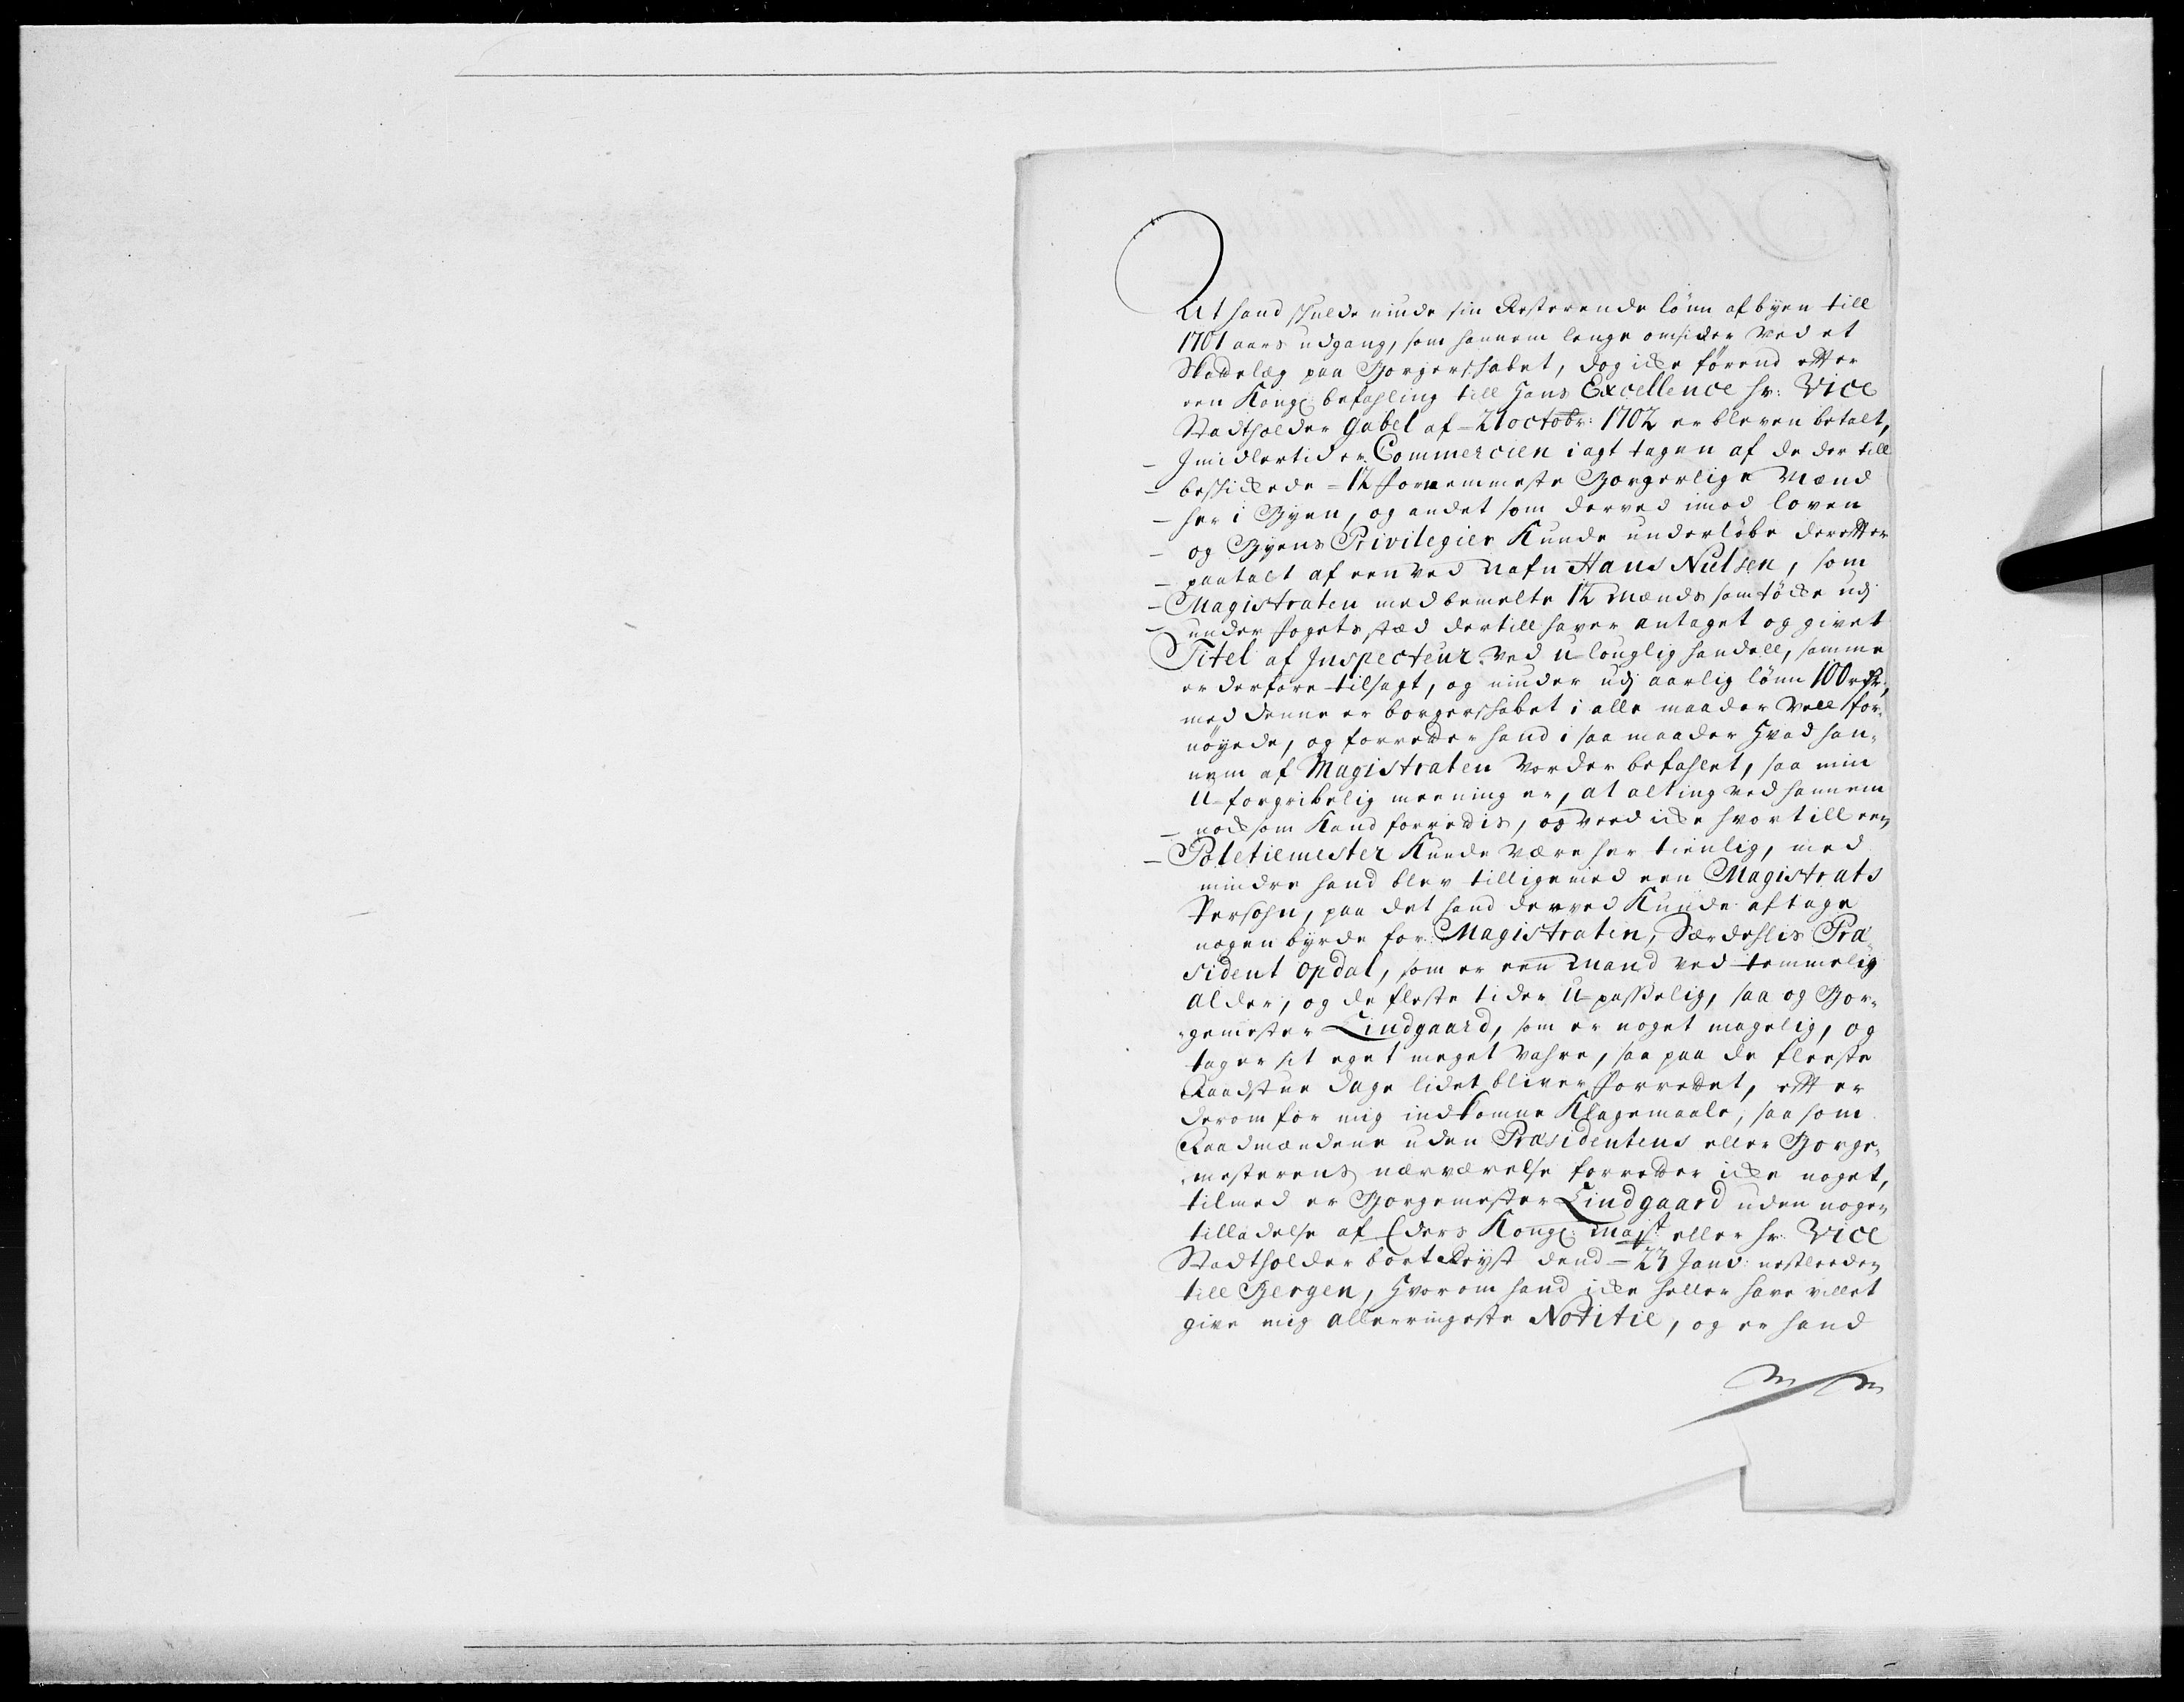 At hand skulde niude sin Resterende lönn af byen till
1701 aars udgang, som hannem lenge omsider ved et
Skattelæg paa Borgerskabet, dog icke förend etter
een Kongl: befahling till Hans Excellence hr: Vice
Stadtholder Gabel af 21 octobr: 1702 er bleven betalt,
Imidlertid er Commercien i agt tagen af de der till
beskickede 12 fornemmeste Borgerlige Mænd
her i Byen, og andet som derved imod loven
og Byens Privilegier Kunde underlöbe deretter
paatalt af een ved nafn Hans Nielsen, som
Magistraten med bemelte 12 Mænds samtöcke udj
under fogets stæd dertill haver antaget og givet
Titel af Inspecteur ved u-louglig handell, samme
er derfore tilsagt, og niuder udj aarlig lönn 100 rdr,
med denne er borgerskabet i alle maader vell for-
nöyede, og forretter hand i saa maader Hvad han-
nem af Magistraten vorder befahlet, saa min
U-forgribelig meening er, at alting ved hannem
nock som Kand forrettis, og veed icke hvortill een
Poletiemester Kunde være her tienlig, med
mindre hand blev tilligemed een Magistrats
Persohn, paa det hand derved Kunde aftage
nogen byrde for Magistraten, Særdehlis Præ-
sident Opdal, som er een Mand ved temmelig
Alder, og de fleste tider U-passelig, saa og Bor-
gemester Lindgaard, som er noget magelig, og
tager sit eget meget vahre, saa paa de fleeste
Raadstue dage lidet bliver forrettet, etter
derom for mig indkomne Klagemaale, saa som
Raadmændene uden Præsidentens eller Borge-
mesterens nærværelse forretter icke noget,
tilmed er Borgemester Lindgaard uden nogen
tilladelse af Eders Kongl: Majst eller hr: Vice
Stadtholder bortReyst dend 23 Janv: nestleeden
till Bergen, Hvorom hand icke heller have villet
give mig allerringeste Notitie, og er hand